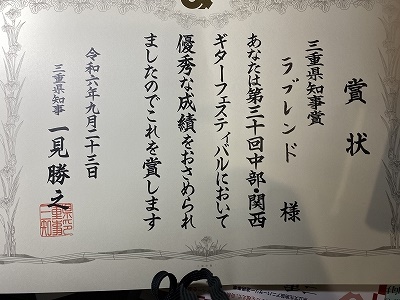 賞状
三重県知事賞
ラブレンド 様
あなたは第三十回中部・関西
ギターフェスティバルにおいて
優秀な成績をおさめられ
ましたのでこれを賞します
令和六年九月二十三日
三重県知事 一見勝之